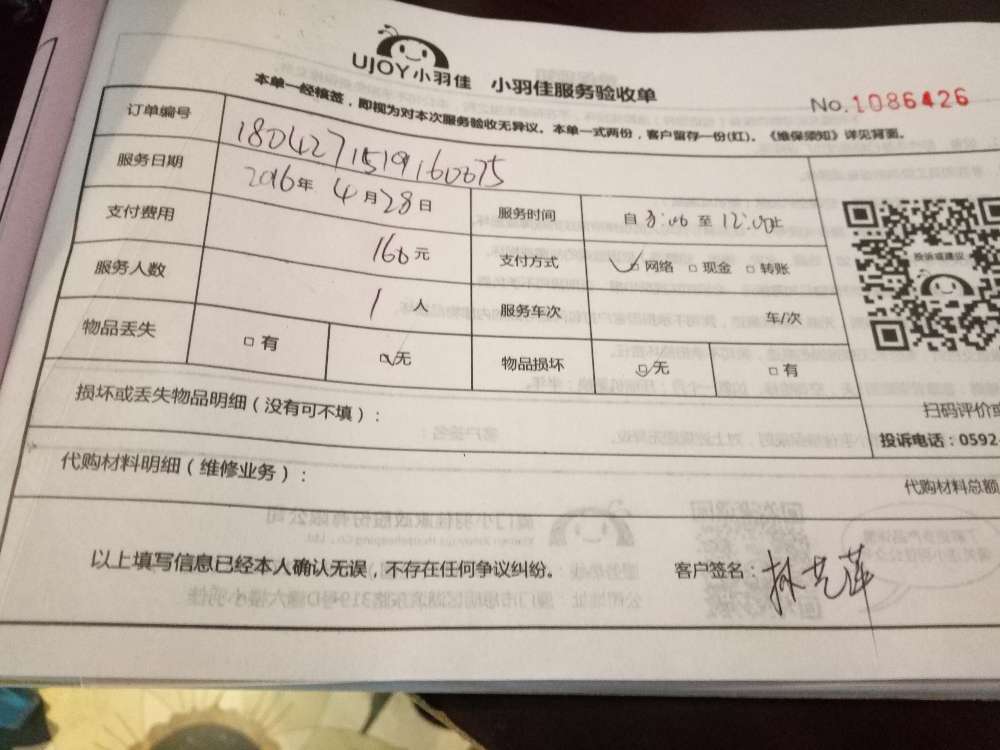 UJOY小羽佳 小羽佳服务验收单
No.1086426
本单一经核签，即视为对本次服务验收无异议。本单一式两份，客户留存一份(红)。《维保须知》详见背面。
订单编号 1804271519160675
服务日期 2016年 4月28日 服务时间 自 至 12:00止
支付费用 元 支付方式 网络 □现金 □转账
服务人数 1人 服务车次 车/次
物品丢失 □有 无 物品损坏 无 □有
投诉或建议
损坏或丢失物品明细（没有可不填）：
扫码评价或
投诉电话：0592-
代购材料明细（维修业务）：
代购材料总额
以上填写信息已经本人确认无误，不存在任何争议纠纷。 客户签名：